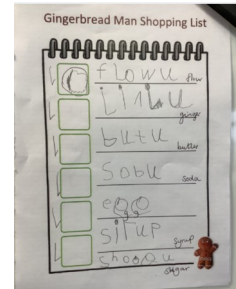 Gingerbread Man Shopping List
flowu
flour
ginger
butu
butter
Sobu
soda
egg
sirup
syrup
shoogu
sugar